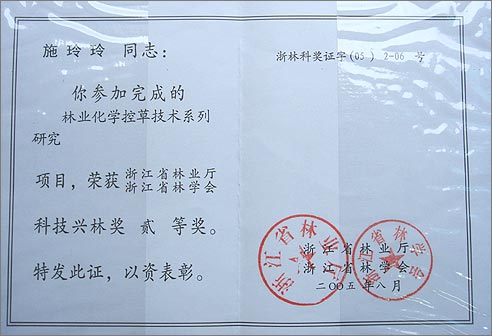 施玲玲 同志：
浙林科奖证字(05) 2-06 号
你参加完成的
林业化学控草技术系列
研究
项目，荣获 浙江省林业厅
浙江省林学会
科技兴林奖 贰 等奖。
特发此证，以资表彰。
浙江省林业厅
浙江省林学会
二〇〇五年八月
浙江省林业厅
浙江省林学会